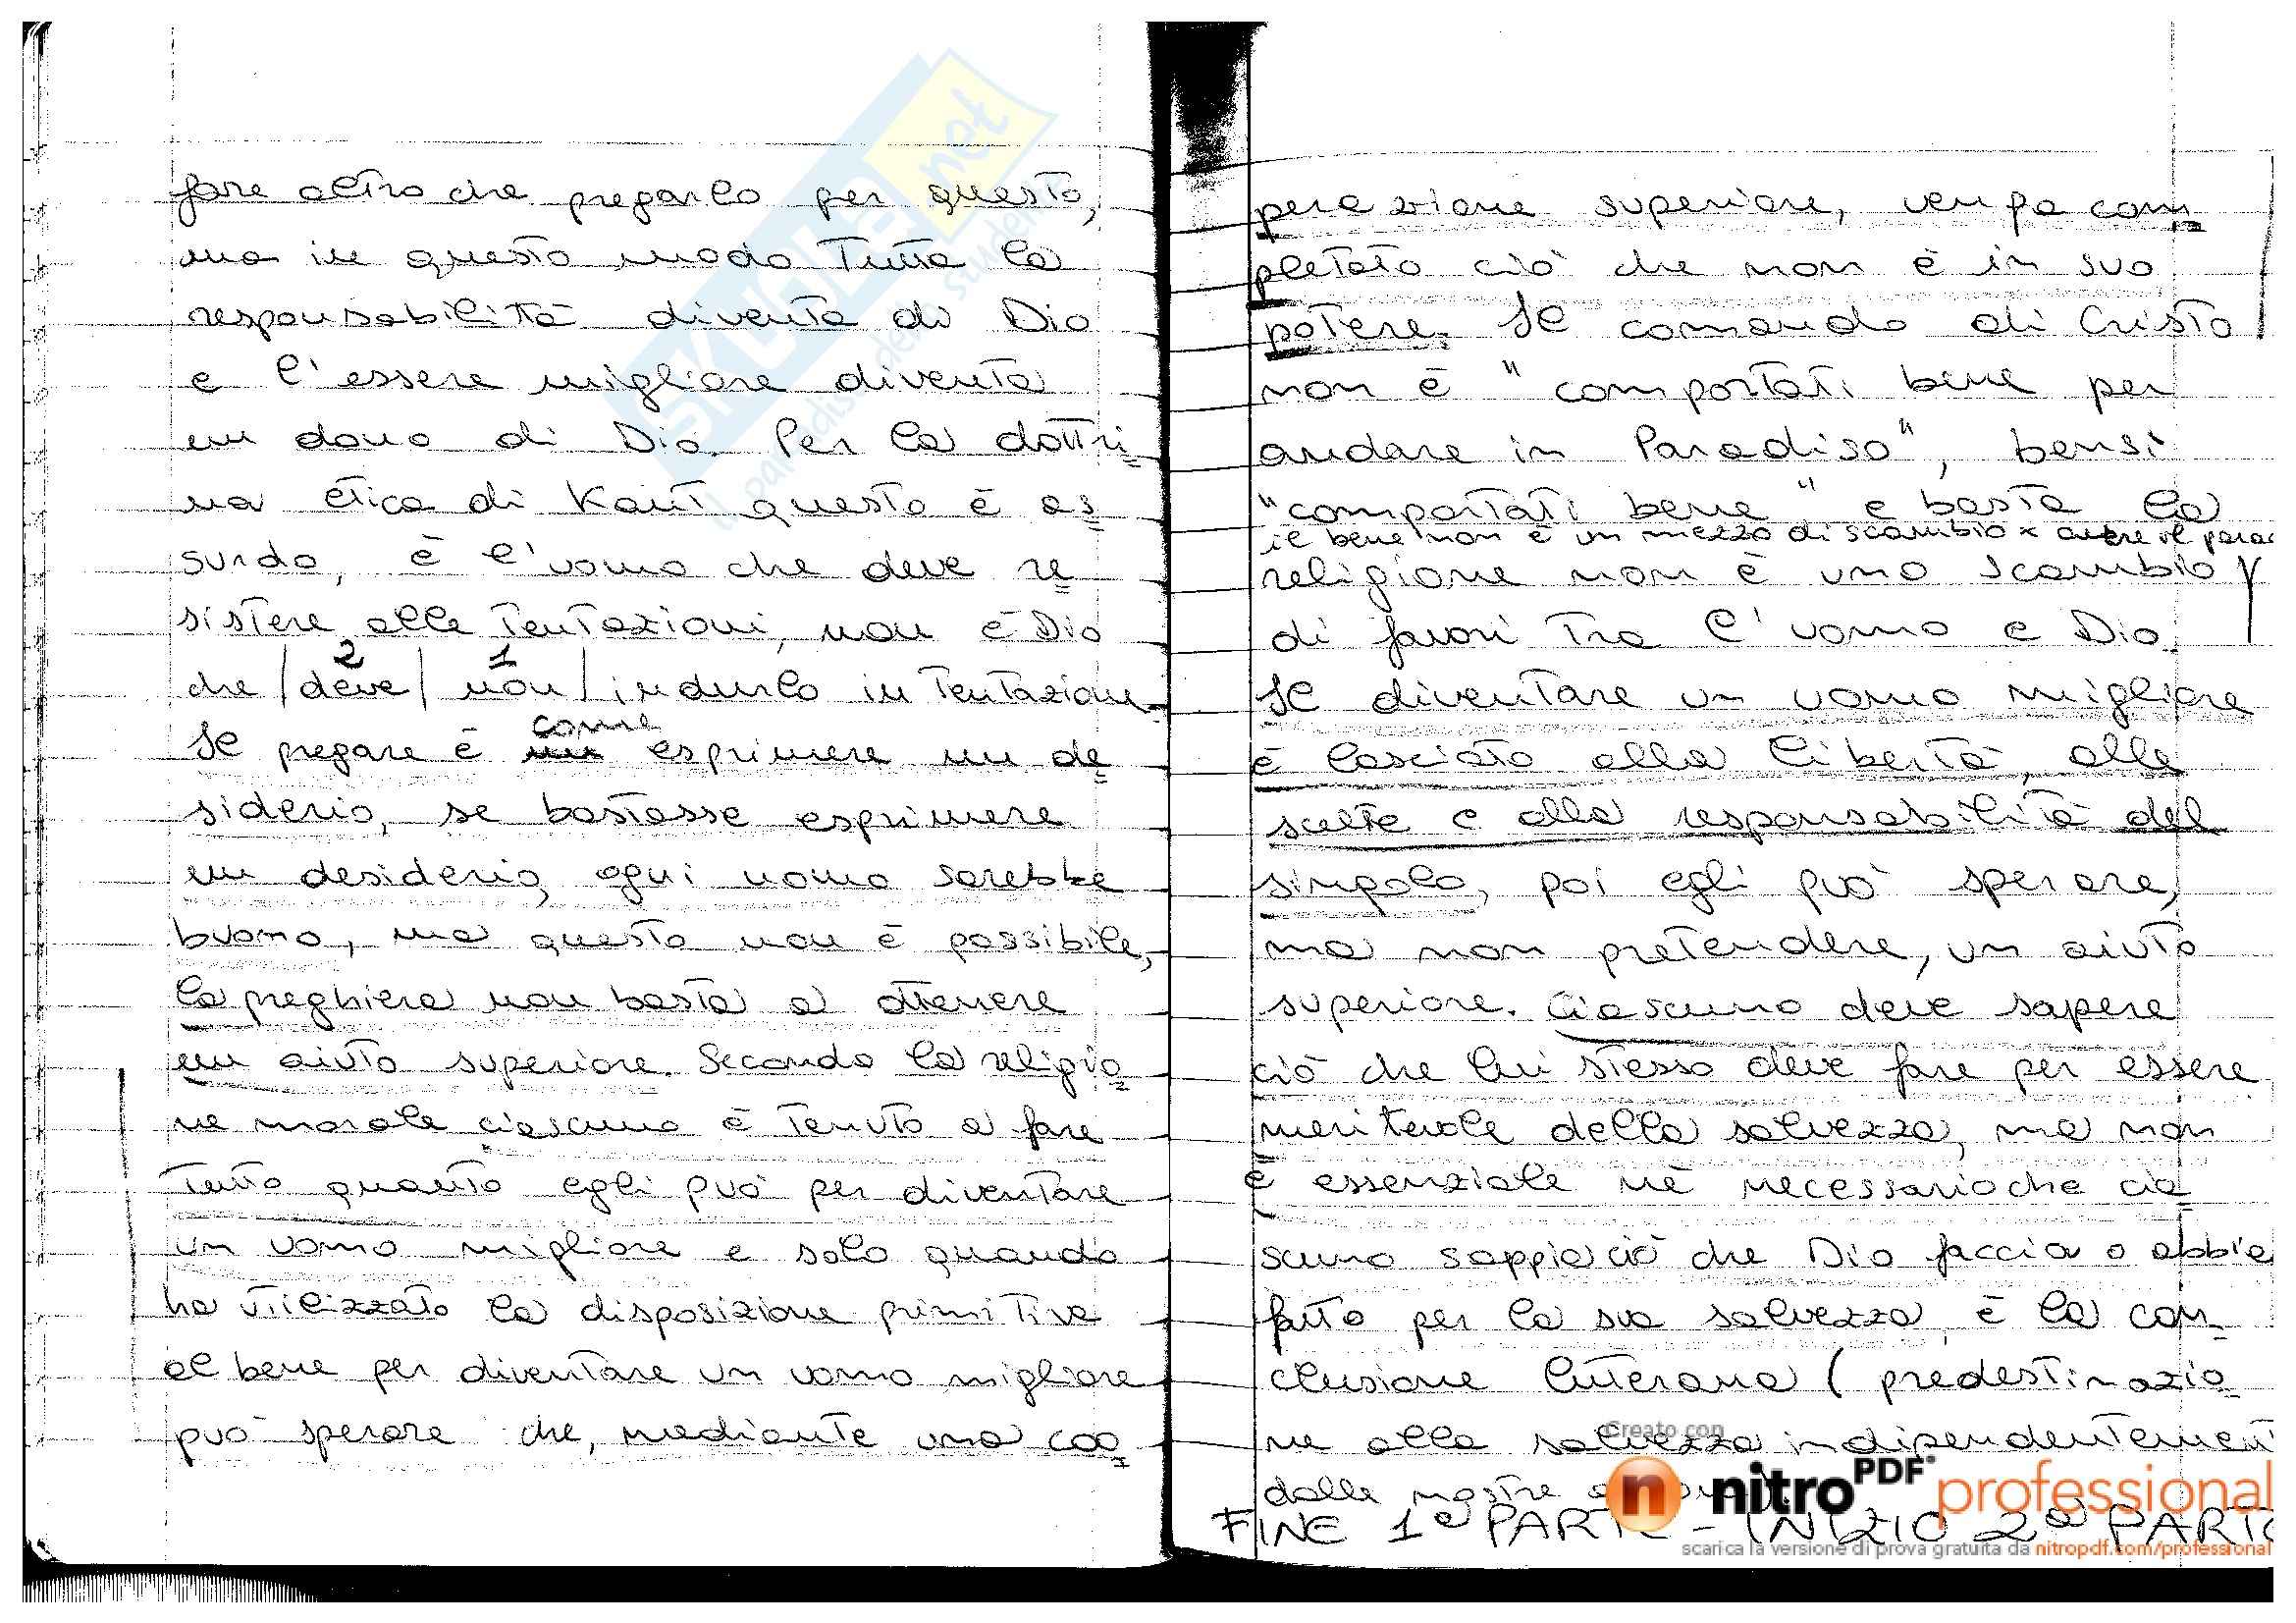 fare altro che pregarlo per questo,
ma in questo modo tutta la
responsabilità diventa di Dio
e l'essere migliore diventa
un dono di Dio. Per la dottri
na etica di Kant questo è as
surdo, è l'uomo che deve re
sistere alle tentazioni, non è Dio
2 1
che / deve / non / indurlo in tentazione
come
Se pregare è esprimere un de
siderio, se bastasse esprimere
un desiderio, ogni uomo sarebbe
buono, ma questo non è possibile,
la preghiera non basta a ottenere
un aiuto superiore. Secondo la religio
ne morale ciascuno è tenuto a fare
tutto quanto egli può per diventare
un uomo migliore e solo quando
ha utilizzato la disposizione primitiva
al bene per diventare un uomo migliore
può sperare che, mediante una coo
perazione superiore, venga com
pletato ciò che non è in suo
potere. Il comando di Cristo
non è "comportati bene per
andare in Paradiso", bensì
"comportati bene" e basta la
il bene non è un mezzo di scambio x avere il parad
religione non è uno scambio
di favori tra l'uomo e Dio.
Il diventare un uomo migliore
è lasciato alla libertà, alle
scelte e alla responsabilità del
singolo, poi egli può sperare,
ma non pretendere, un aiuto
superiore. Ciascuno deve sapere
ciò che lui stesso deve fare per essere
meritevole della salvezza, ma non
è essenziale nè necessario che cia
scuno sappia ciò che Dio faccia o abbia
fatto per la sua salvezza, è la con
clusione luterana (predestinazio
ne alla salvezza indipendentement
dalle nostre
FINE 1ª PARTE - INIZIO 2ª PARTE
SKUOLA.net
il paradiso dello studente
Creato con
nitroPDF professional
scarica la versione di prova gratuita da nitropdf.com/professional